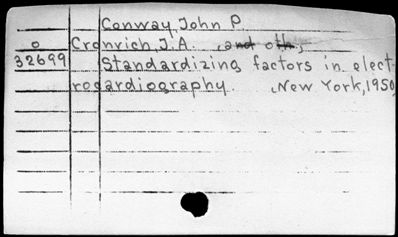 Conway, John P.
o Cronvich, J.A. , and oth,
32699 Standardizing factors in elect-
rocardiography. New York, 1950,